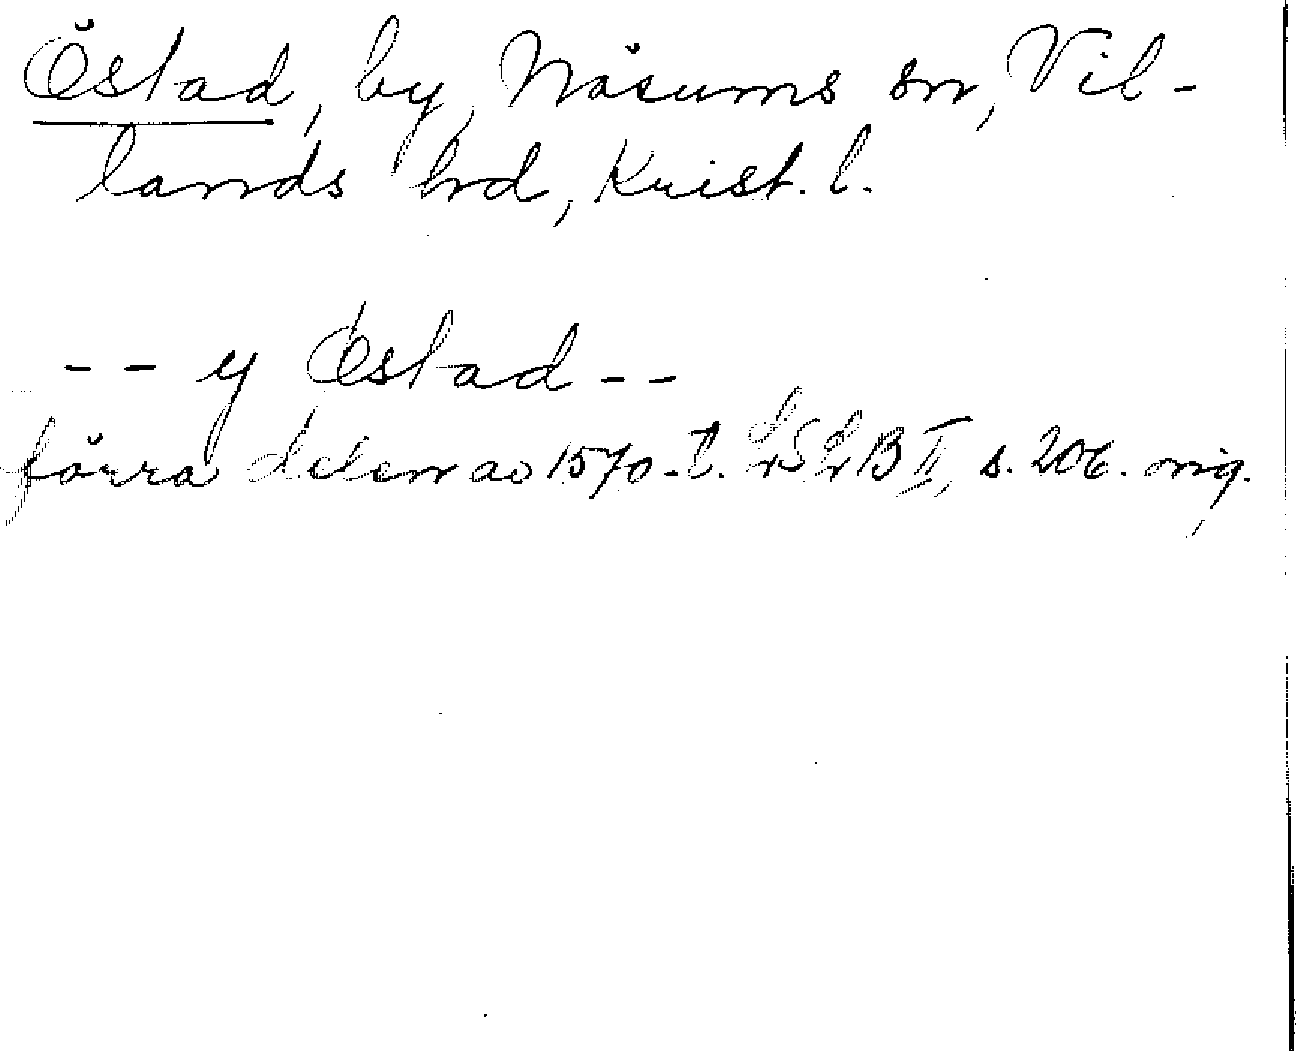 Östad, by, Näsums sn, Vil-
lands hd, Krist. l.
-- y Østad --
förra delen av 1570-t. LSLB II, s. 206. orig.